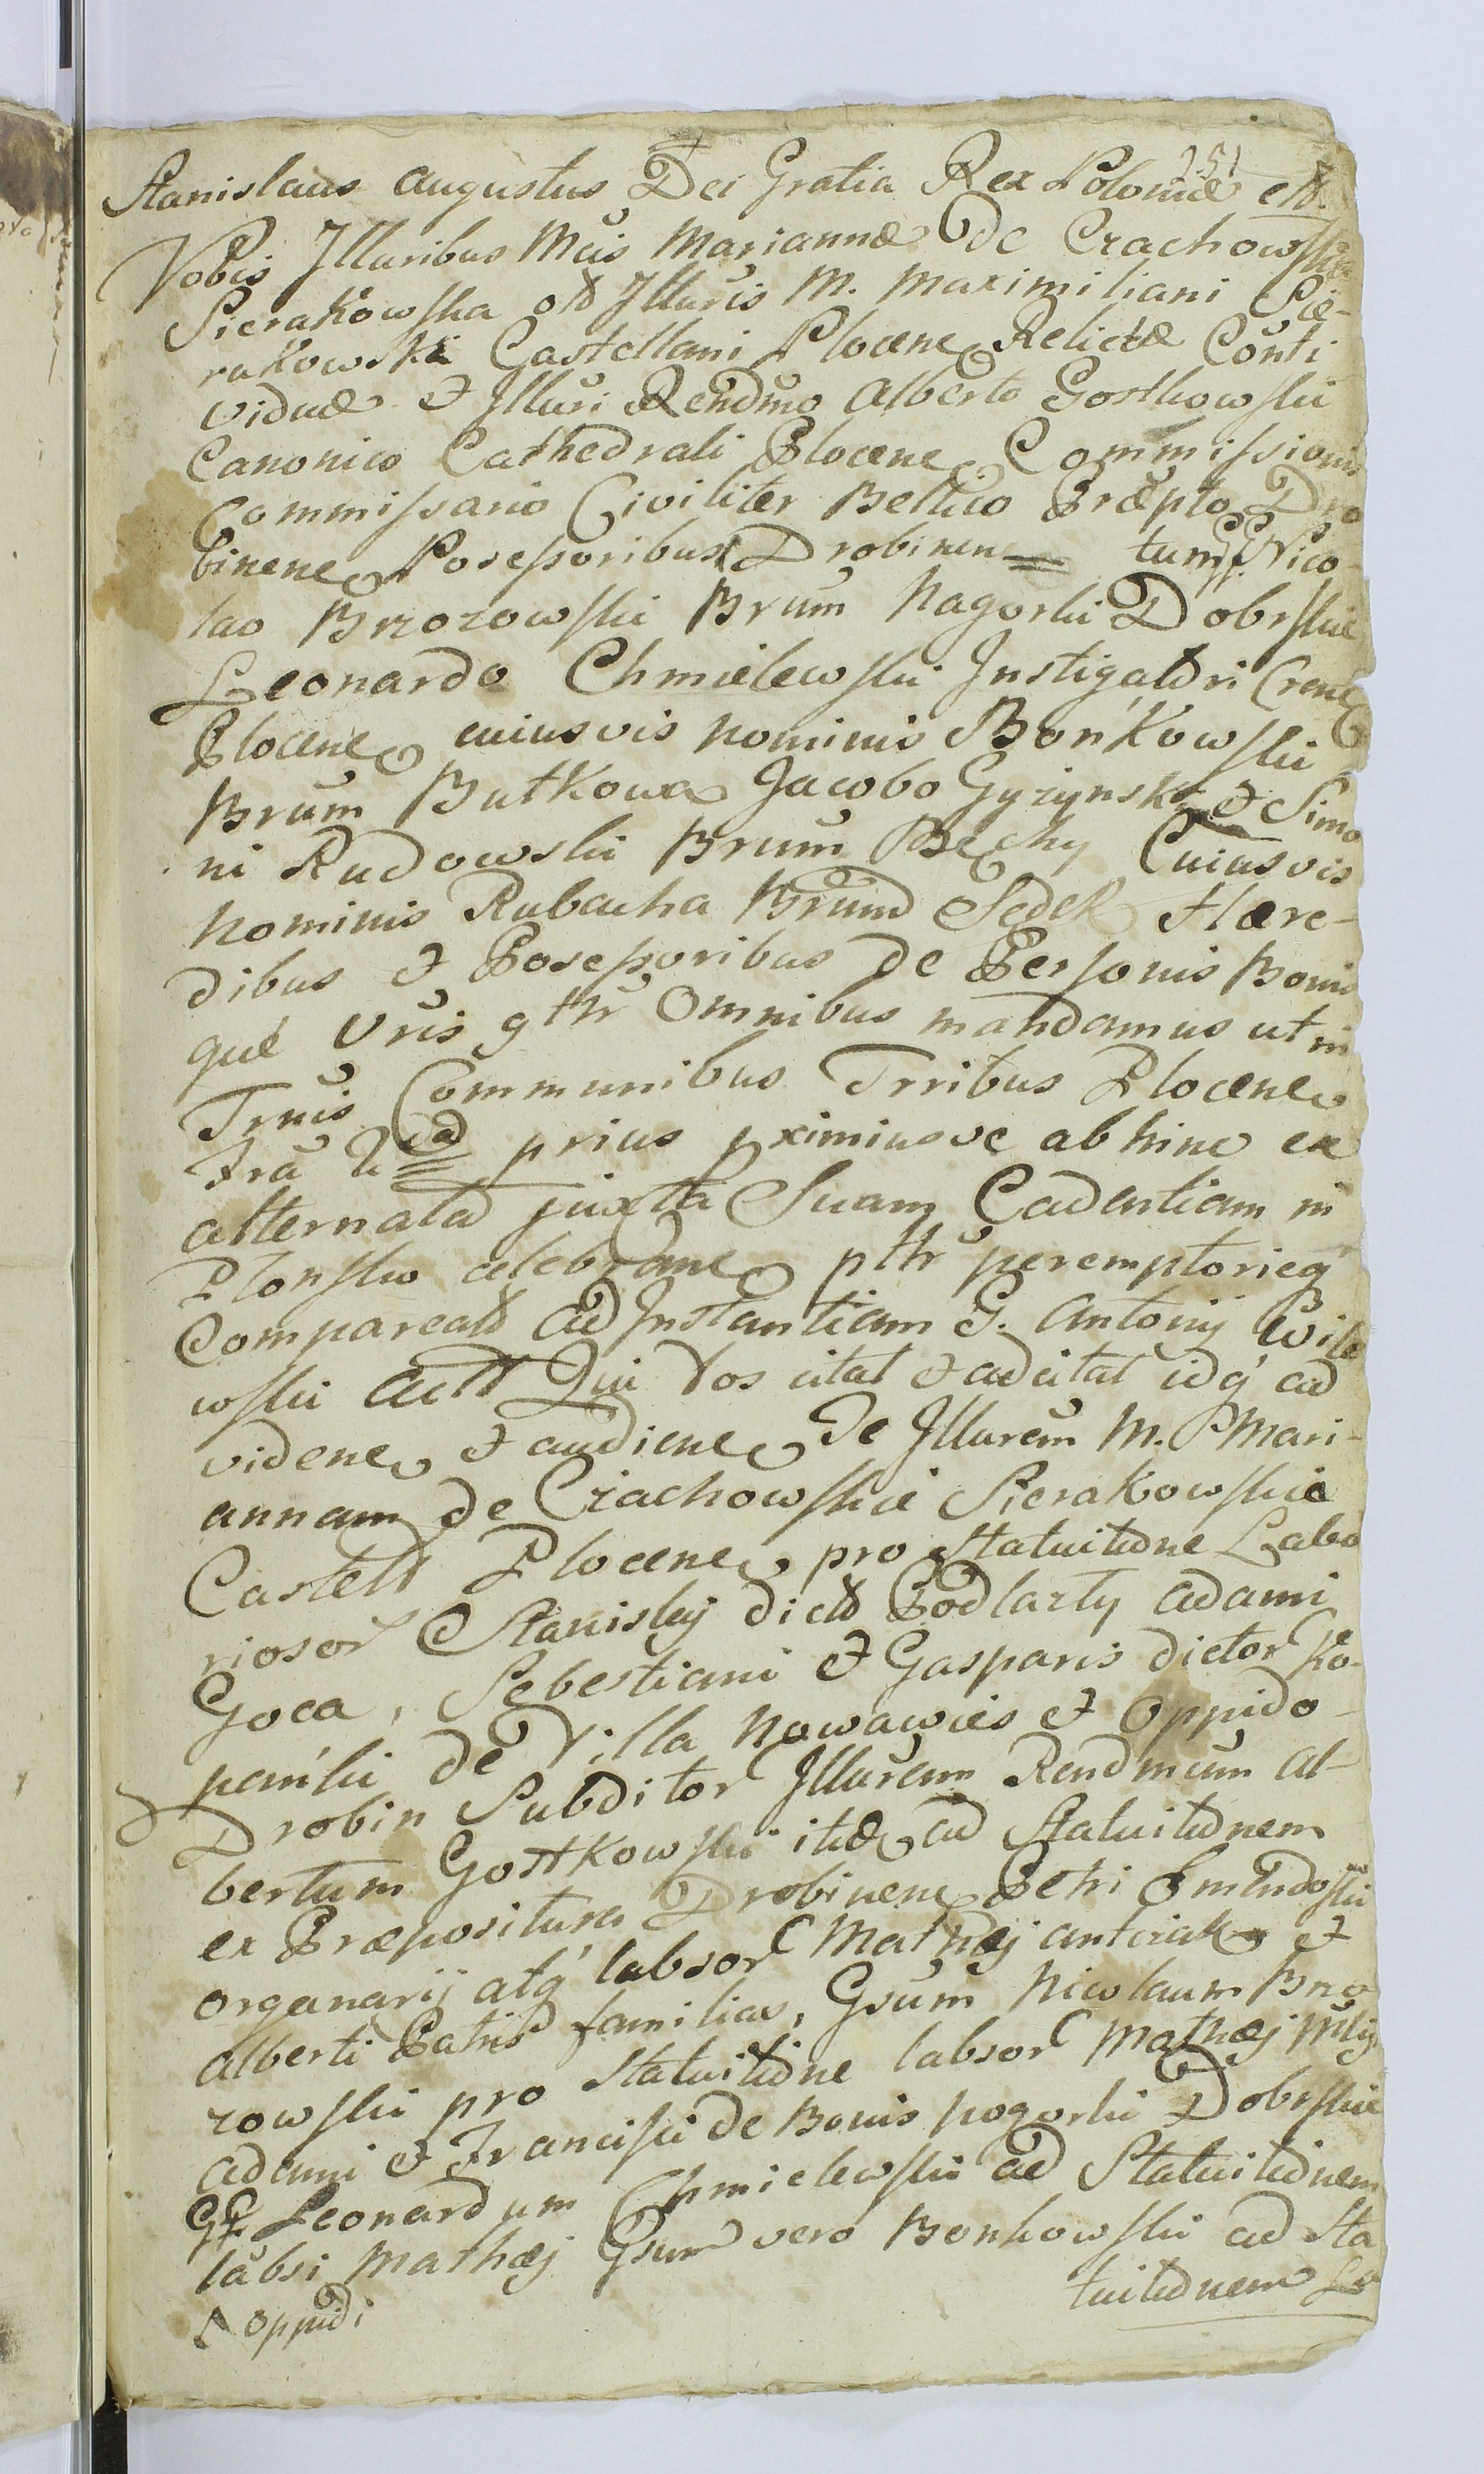 251
Stanislaus Augustus Dei Gratia Rex Poloniæ ett.
Vobis Illuribus Mcis Mariannæ De Czachowskie
Sierakowska ott Illuris M. Maximiliani Sie-
rakowski Castellani Plocene Relictæ Conti
viduæ et Illuri Rendmo Alberto Gostkowski
Canonico Cathedrali Plocene Commissionis
Commissario Civiliter Bellico Præpto Dro
binene Posessoribus Drobinen tum G Nico-
lao Brzozowski Brum Nagorki Dobrskie
Leonardo Chmielewski Instigatori Crene
Plocene cuiusvis nominis Bońkowski
Brum Butkowa Jacobo Gyzynski et Simo
ni Rudowski Brum Bechy Cuiusvis
nominis Rubacha Brum Sędek Hære-
dibus et Posessoribus de Personis Bonis
que Vris gthr Omnibus mandamus ut in
Trnis Communibus Trribus Plocene
prius pximiusve ab hinc ex
alternata juxta Suam Cadentiam in
Plonsko celebrane pthr peremptorieq
Compareatt Ad Instantiam G. Antonij Wilk
wski Qui Vos citat et adcitat idq ad
videne et audiene De Illurem M. Mari-
annam de Czachowskie Sierakowskie
Castell Plocene pro Statuitidne Labo
riosor Stanislaj dictt Podlazly Adami
Goca, Sebestiani et Gasparis dictor Ko-
pański de Villa Nowawies et Oppido
Drobin Subditor Illurem Rendmum Al-
bertum Gostkowski ad Statuitidnem
ex Præpositura Drobinene Petri
organarij atq labsor Mathæj Antczak et
Alberti Patris familias, Gsum Nicolaum Brzo
zowski pro Statuitidne labsor Mathæj
Adami et Francisci de Bonis Nogorki Dobrskie
G Leonardum Chmielewski ad Statuitidnem
labsi Mathæj Gsum vero Bonkowski ad Sta
tuitidnem La
Oppidi